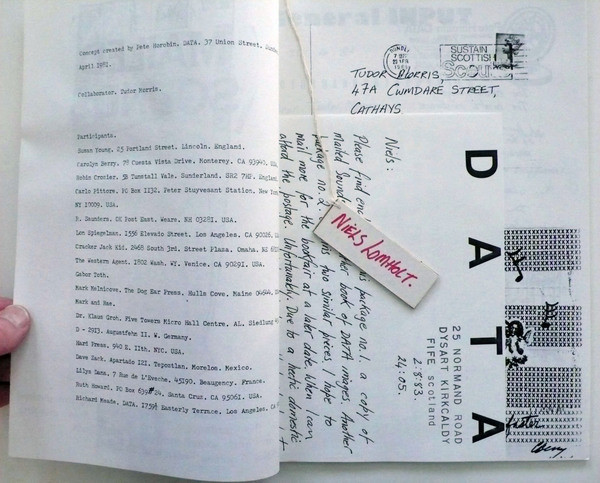 Concept created by Pete Horobin. DATA. 37 Union Street.
April 1982.
Collaborator. Tudor Morris.
Participants.
Susan Young. 25 Portland Street. Lincoln. England.
Carolyn Berry. 78 Cuesta Vista Drive. Monterey. CA 93940.
Robin Crozier. 5B Tunstall Vale. Sunderland. SR2 7HP. England
Carlo Pittore. PO Box 1132. Peter Stuyvesant Station. New
NY 10009. USA.
R. Saunders. GK Post East. Weare. NH 03281. USA.
Lon Spiegelman. 1556 Elevado Street. Los Angeles. CA 90026.
Cracker Jack Kid. 2465 South 3rd. Street Plaza. Omaha.
The Western Agent. 1802 Wash. Wy. Venice. CA 90291. USA.
Gabor Toth.
Mark Melnicove. The Dog Ear Press. Hulls Cove. Maine
Mark and Mae.
Dr. Klaus Groh. Five Towers Micro Hall Centre.
D - 2913. Augustfehn II. W. Germany.
Harf Press. 540 E. 11th. NYC. USA.
Dave Zack. Apartado 121. Tepoztlan. Morelos. Mexico.
Lilys Dana. 7 Rue de L'Eveche. 45190. Beaugency. France.
Ruth Howard. PO Box
Santa Cruz. CA 95061. USA.
Richard Meade. DATA. 17591 Easterly Terrace. Los Angeles.
General INPUT
SUSTAIN
SCOTTISH
Scouting
TUDOR MORRIS,
47A CWMDARE STREET,
CATHAYS
Niels:
Please find
package no. 1. a copy of
mailed
book of DATA images. Another
package no. 2.
two similar pieces I hope to
mail more for the bookfair at a later date when I can
afford the postage. Unfortunately. Due to a hectic domestic
NIELS LOMHOLT.
25 NORMAND ROAD
DYSART KIRKCALDY
FIFE scotland
2:8:83.
24:05.
DATA